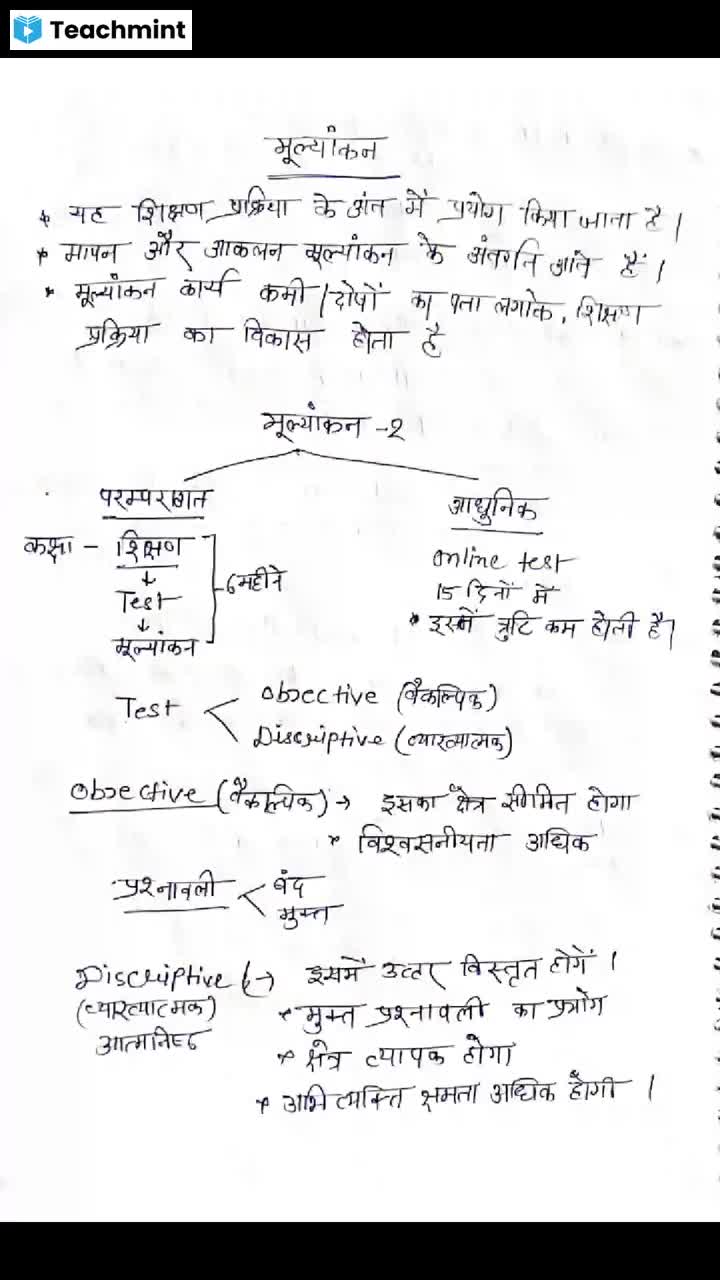 Teachmint
मूल्यांकन
* यह शिक्षण प्रक्रिया के अंत में प्रयोग किया जाता है।
* मापन और आकलन मूल्यांकन के अंतर्गत आते हैं।
* मूल्यांकन कार्य कमी/दोषों का पता लगाके, शिक्षण
प्रक्रिया का विकास होता है
मूल्यांकन -2
परम्परागत आधुनिक
कक्षा - शिक्षण online test
Test 6 महीने 15 दिनों में
मूल्यांकन * इसमें त्रुटि कम होती है।
Test Objective (वैकल्पिक)
Discriptive (व्याख्यात्मक)
Objective (वैकल्पिक) → इसका क्षेत्र सीमित होगा
* विश्वसनीयता अधिक
प्रश्नावली बंद
मुक्त
Discriptive → इसमें उत्तर विस्तृत होगें।
(व्याख्यात्मक) * मुक्त प्रश्नावली का प्रयोग
आत्मनिष्ठ * क्षेत्र व्यापक होगा
* अभिव्यक्ति क्षमता अधिक होगी।